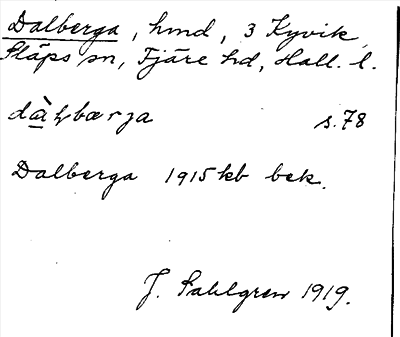 Dalberga, hmd, 3 Kyvik,
Släps sn, Fjäre hd, Hall. l.
dàɫbærja s. 78
Dalberga 1915 kb bek.
J. Sahlgren 1919.